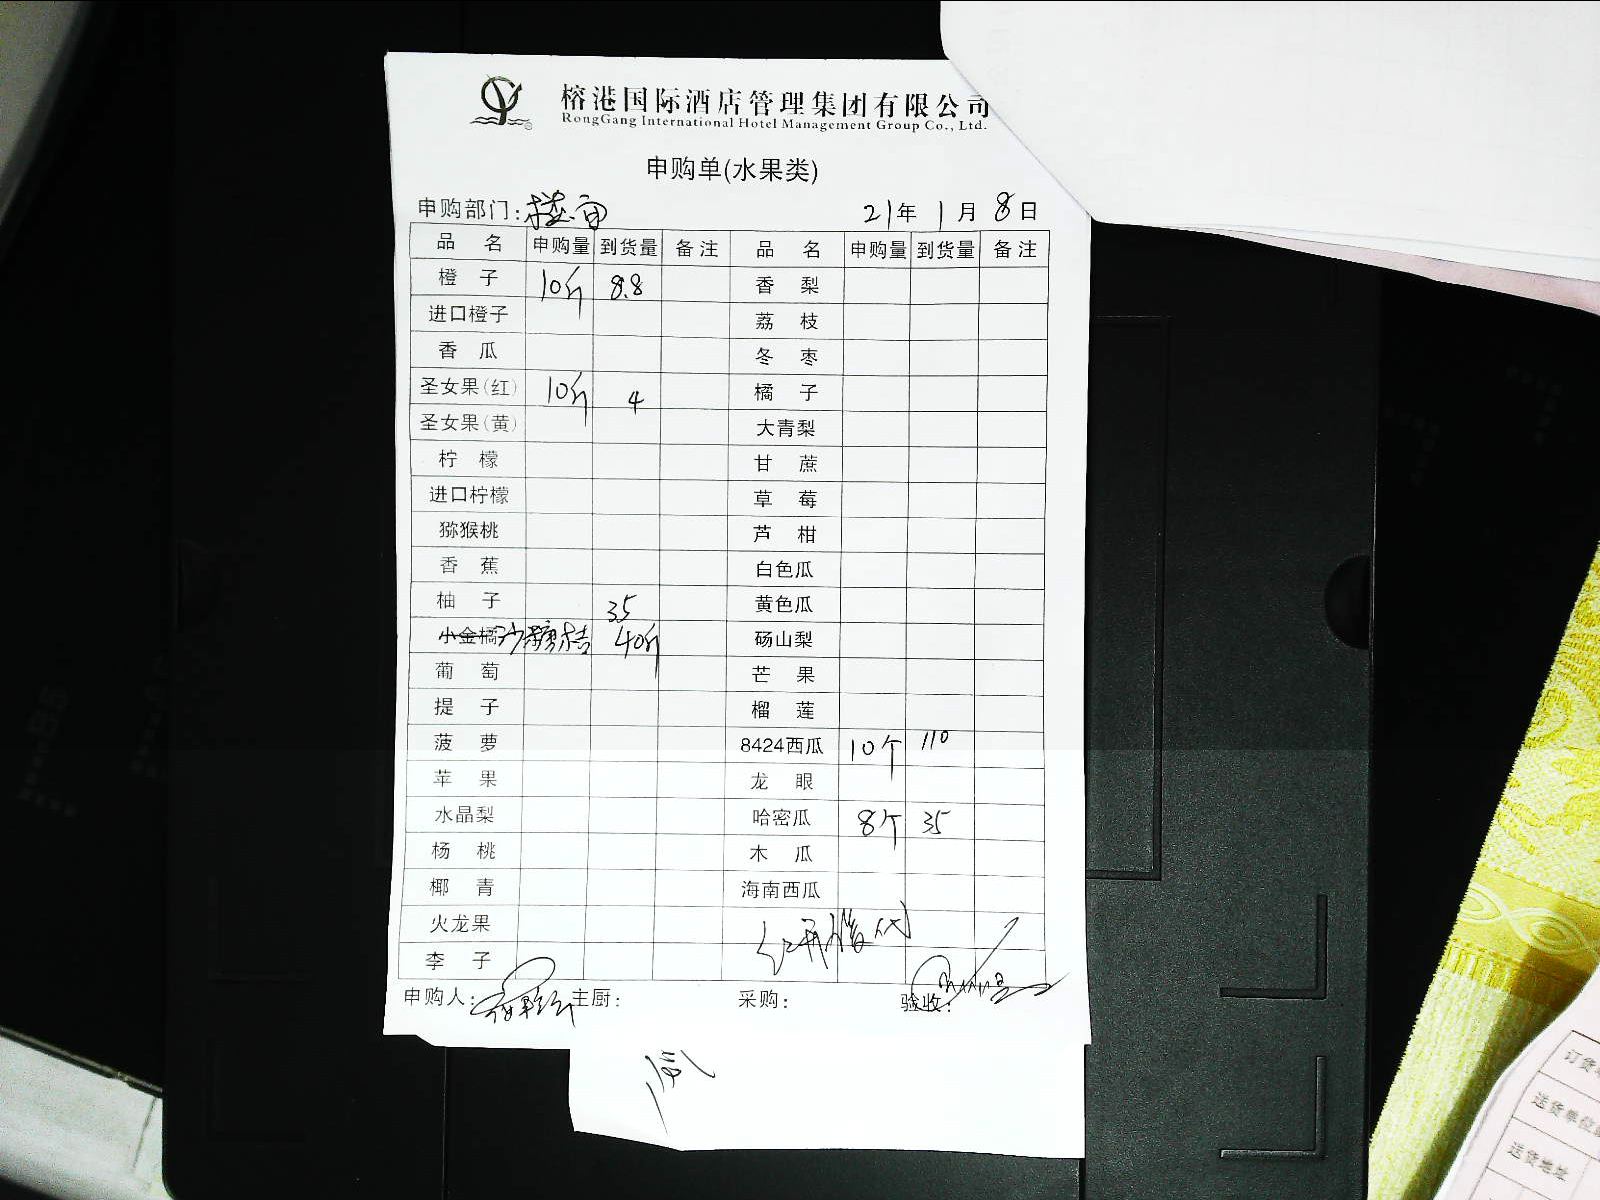 榕港国际酒店管理集团有限公司
RongGang International Hotel Management Group Co., Ltd.
申购单(水果类)
申购部门: 楼面 21年 1月 8日
品名 申购量 到货量 备注 品名 申购量 到货量 备注
橙子 10斤 8.8 香梨
进口橙子 荔枝
香瓜 冬枣
圣女果(红) 10斤 4 橘子
圣女果(黄) 大青梨
柠檬 甘蔗
进口柠檬 草莓
猕猴桃 芦柑
香蕉 白色瓜
柚子 35 黄色瓜
小金橘 沙糖桔 40斤 砀山梨
葡萄 芒果
提子 榴莲
菠萝 8424西瓜 10个 110
苹果 龙眼
水晶梨 哈密瓜 8个 35
杨桃 木瓜
椰青 海南西瓜
火龙果
李子
申购人: 主厨: 采购: 验收:
订货
送货单位
送货地址